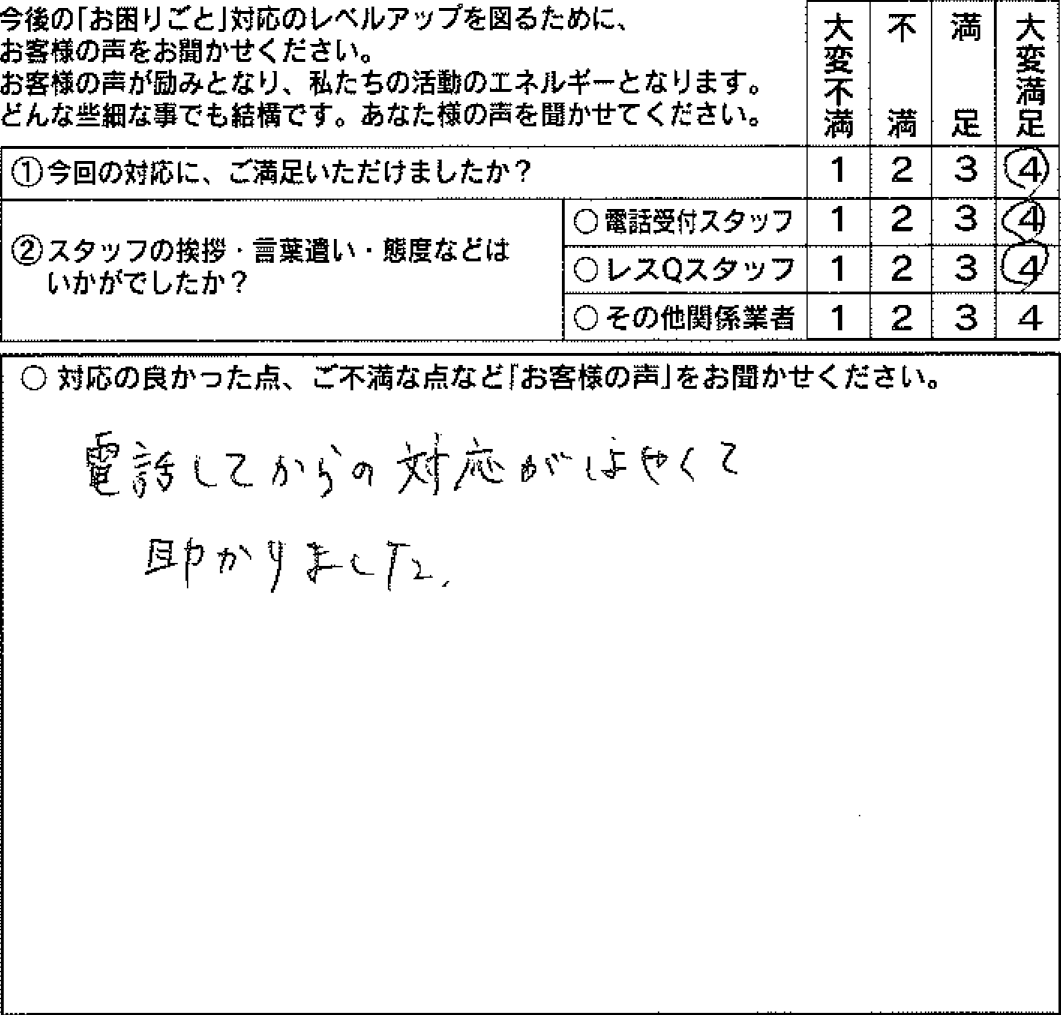 今後の「お困りごと」対応のレベルアップを図るために、
お客様の声をお聞かせください。
お客様の声が励みとなり、私たちの活動のエネルギーとなります。
どんな些細な事でも結構です。あなた様の声を聞かせてください。
大変不満 不満 満足 大変満足
①今回の対応に、ご満足いただけましたか? 1 2 3 4
②スタッフの挨拶・言葉遣い・態度などは
いかがでしたか?
○電話受付スタッフ 1 2 3 4
○レスQスタッフ 1 2 3 4
○その他関係業者 1 2 3 4
○ 対応の良かった点、ご不満な点など「お客様の声」をお聞かせください。
電話してからの対応がはやくて
助かりました.